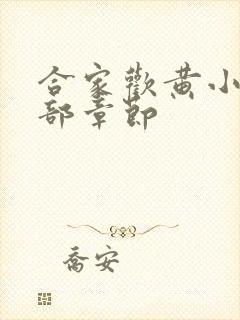 合家歡黄小
部章節
喬安